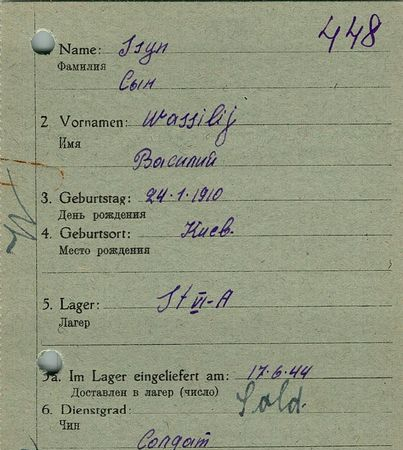 448
1. Name: Ssyn
Фамилия
Сын
2. Vornamen: Wassilij
Имя
Василий
3. Geburtstag: 24.1.1910
День рождения
4. Geburtsort: Киев.
Место рождения
5. Lager: St VI-A
Лагер
5a. Im Lager eingeliefert am: 17.6.44
Доставлен в лагер (число)
6. Dienstgrad: Sold.
Чин
Солдат